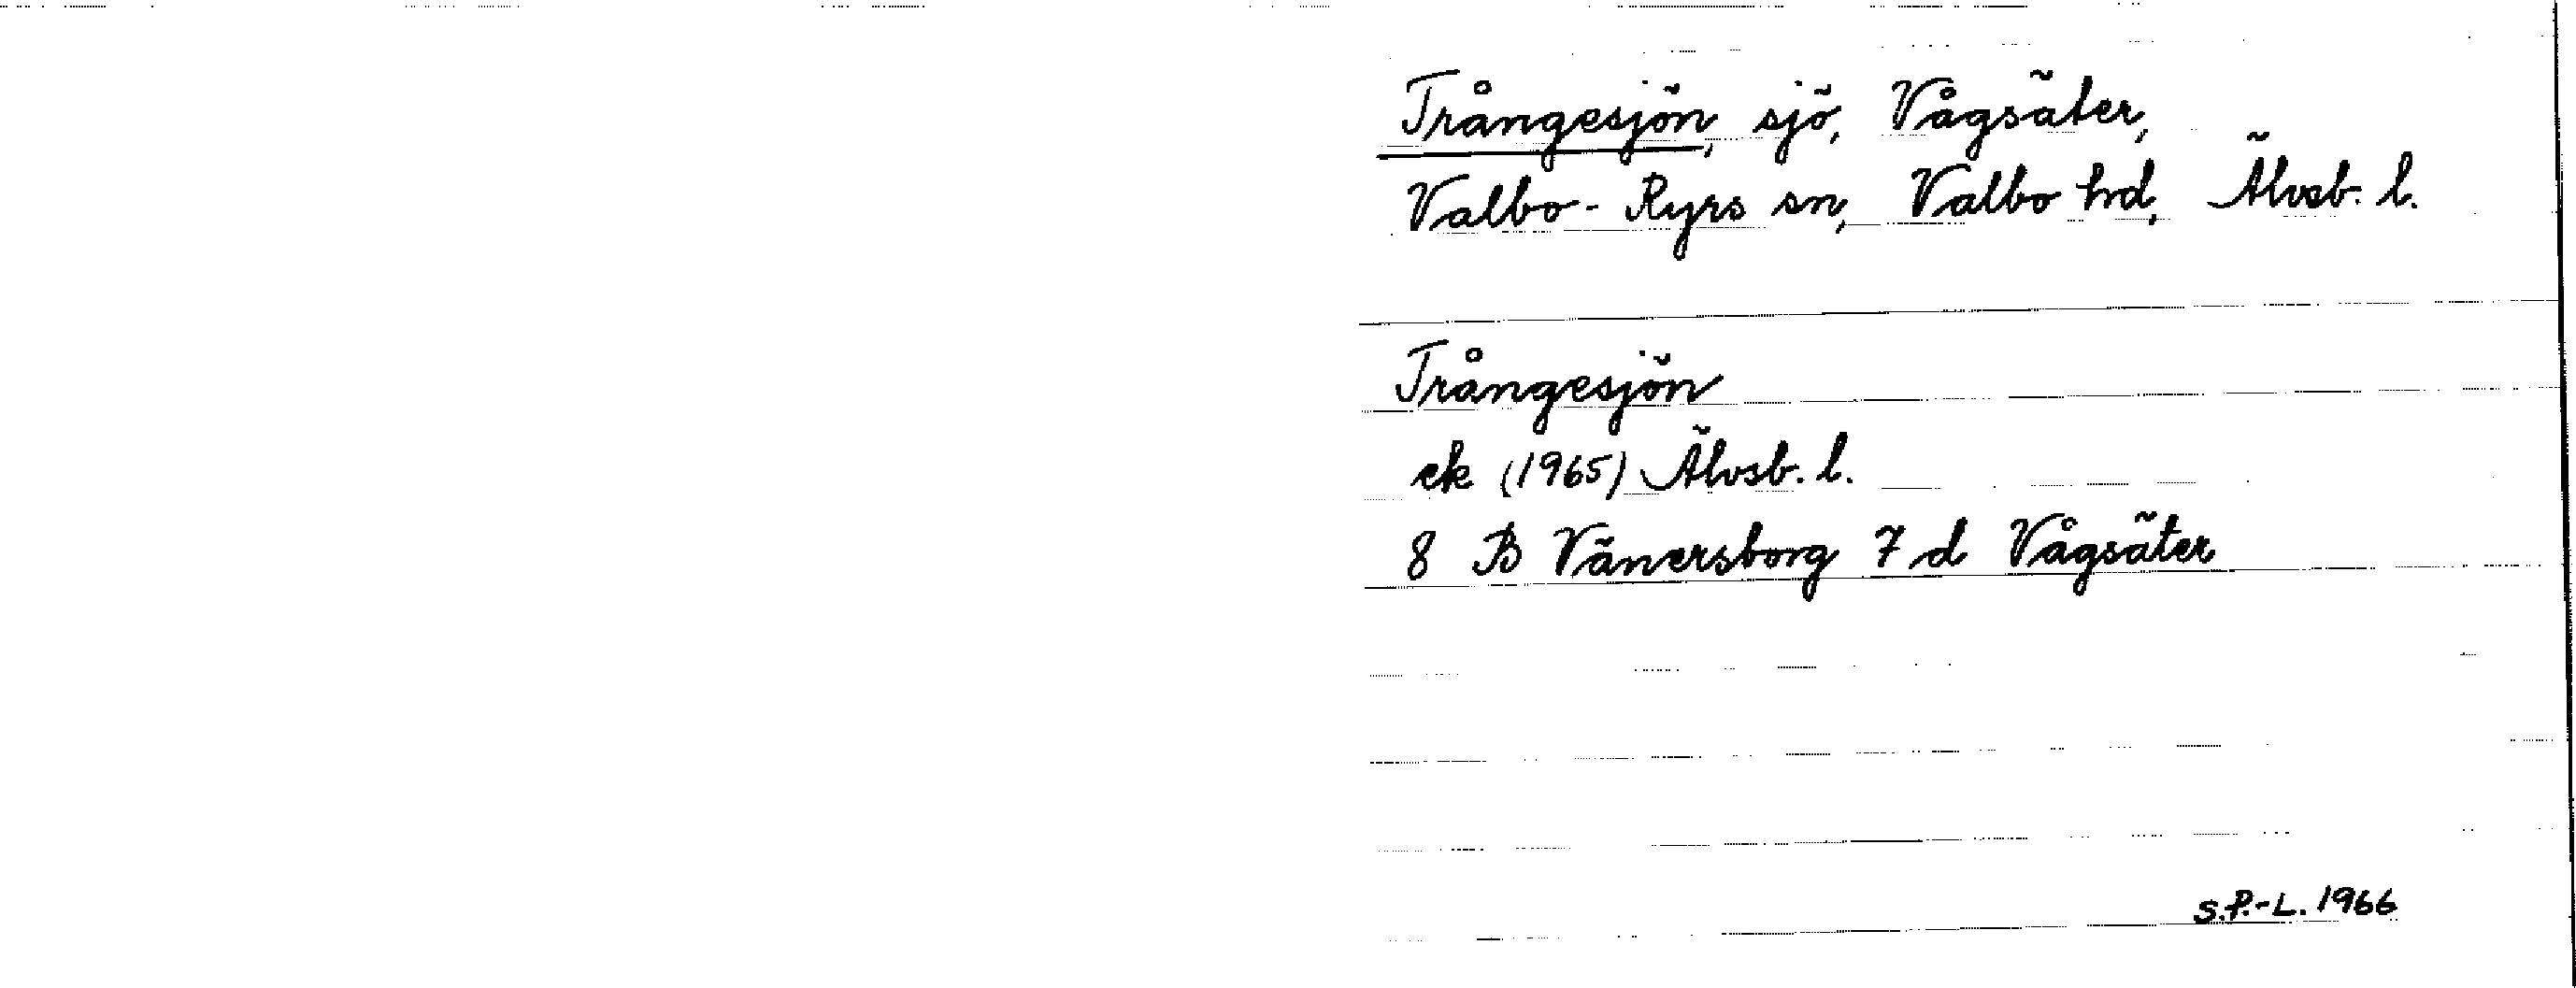 Trångesjön, sjö, Vågsäter,
Valbo-Ryrs sn, Valbo hd, Älvsb. l.
Trångesjön
ek (1965) Älvsb. l.
8 B Vänersborg 7 d Vågsäter
S.P.-L. 1966